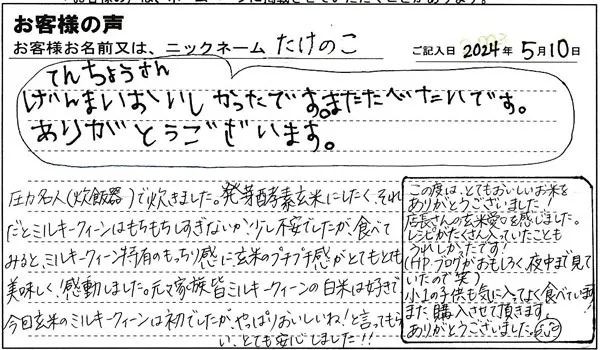 お客様の声
お客様お名前又は、ニックネーム たけのこ ご記入日 2024年 5月10日
てんちょうさん
げんまいおいしかったです。またたべたいです。
ありがとうございます。
圧力名人(炊飯器)で炊きました。発芽酵素玄米にしたく、それ
だとミルキークイーンはもちもちしすぎないか!少し不安でしたが、食べて
みると、ミルキークイーン特有のもっちり感に玄米のプチプチ感がとてもとても
美味しく!感動しました。元々家族皆ミルキークイーンの白米は好きで
今回玄米のミルキークイーンは初でしたが、やっぱりおいしいね!と言ってもら
い、とても安心しました!!
この度は、とてもおいしいお米を
ありがとうございました!
店長さんの玄米愛を感じました。
レシピがたくさん入っていたことも
うれしかったです!
(HP・ブログがおもしろく、夜中まで見て
いたので笑)
小1の子供も気に入ってよく食べています!
また購入させて頂きます。
ありがとうございました。